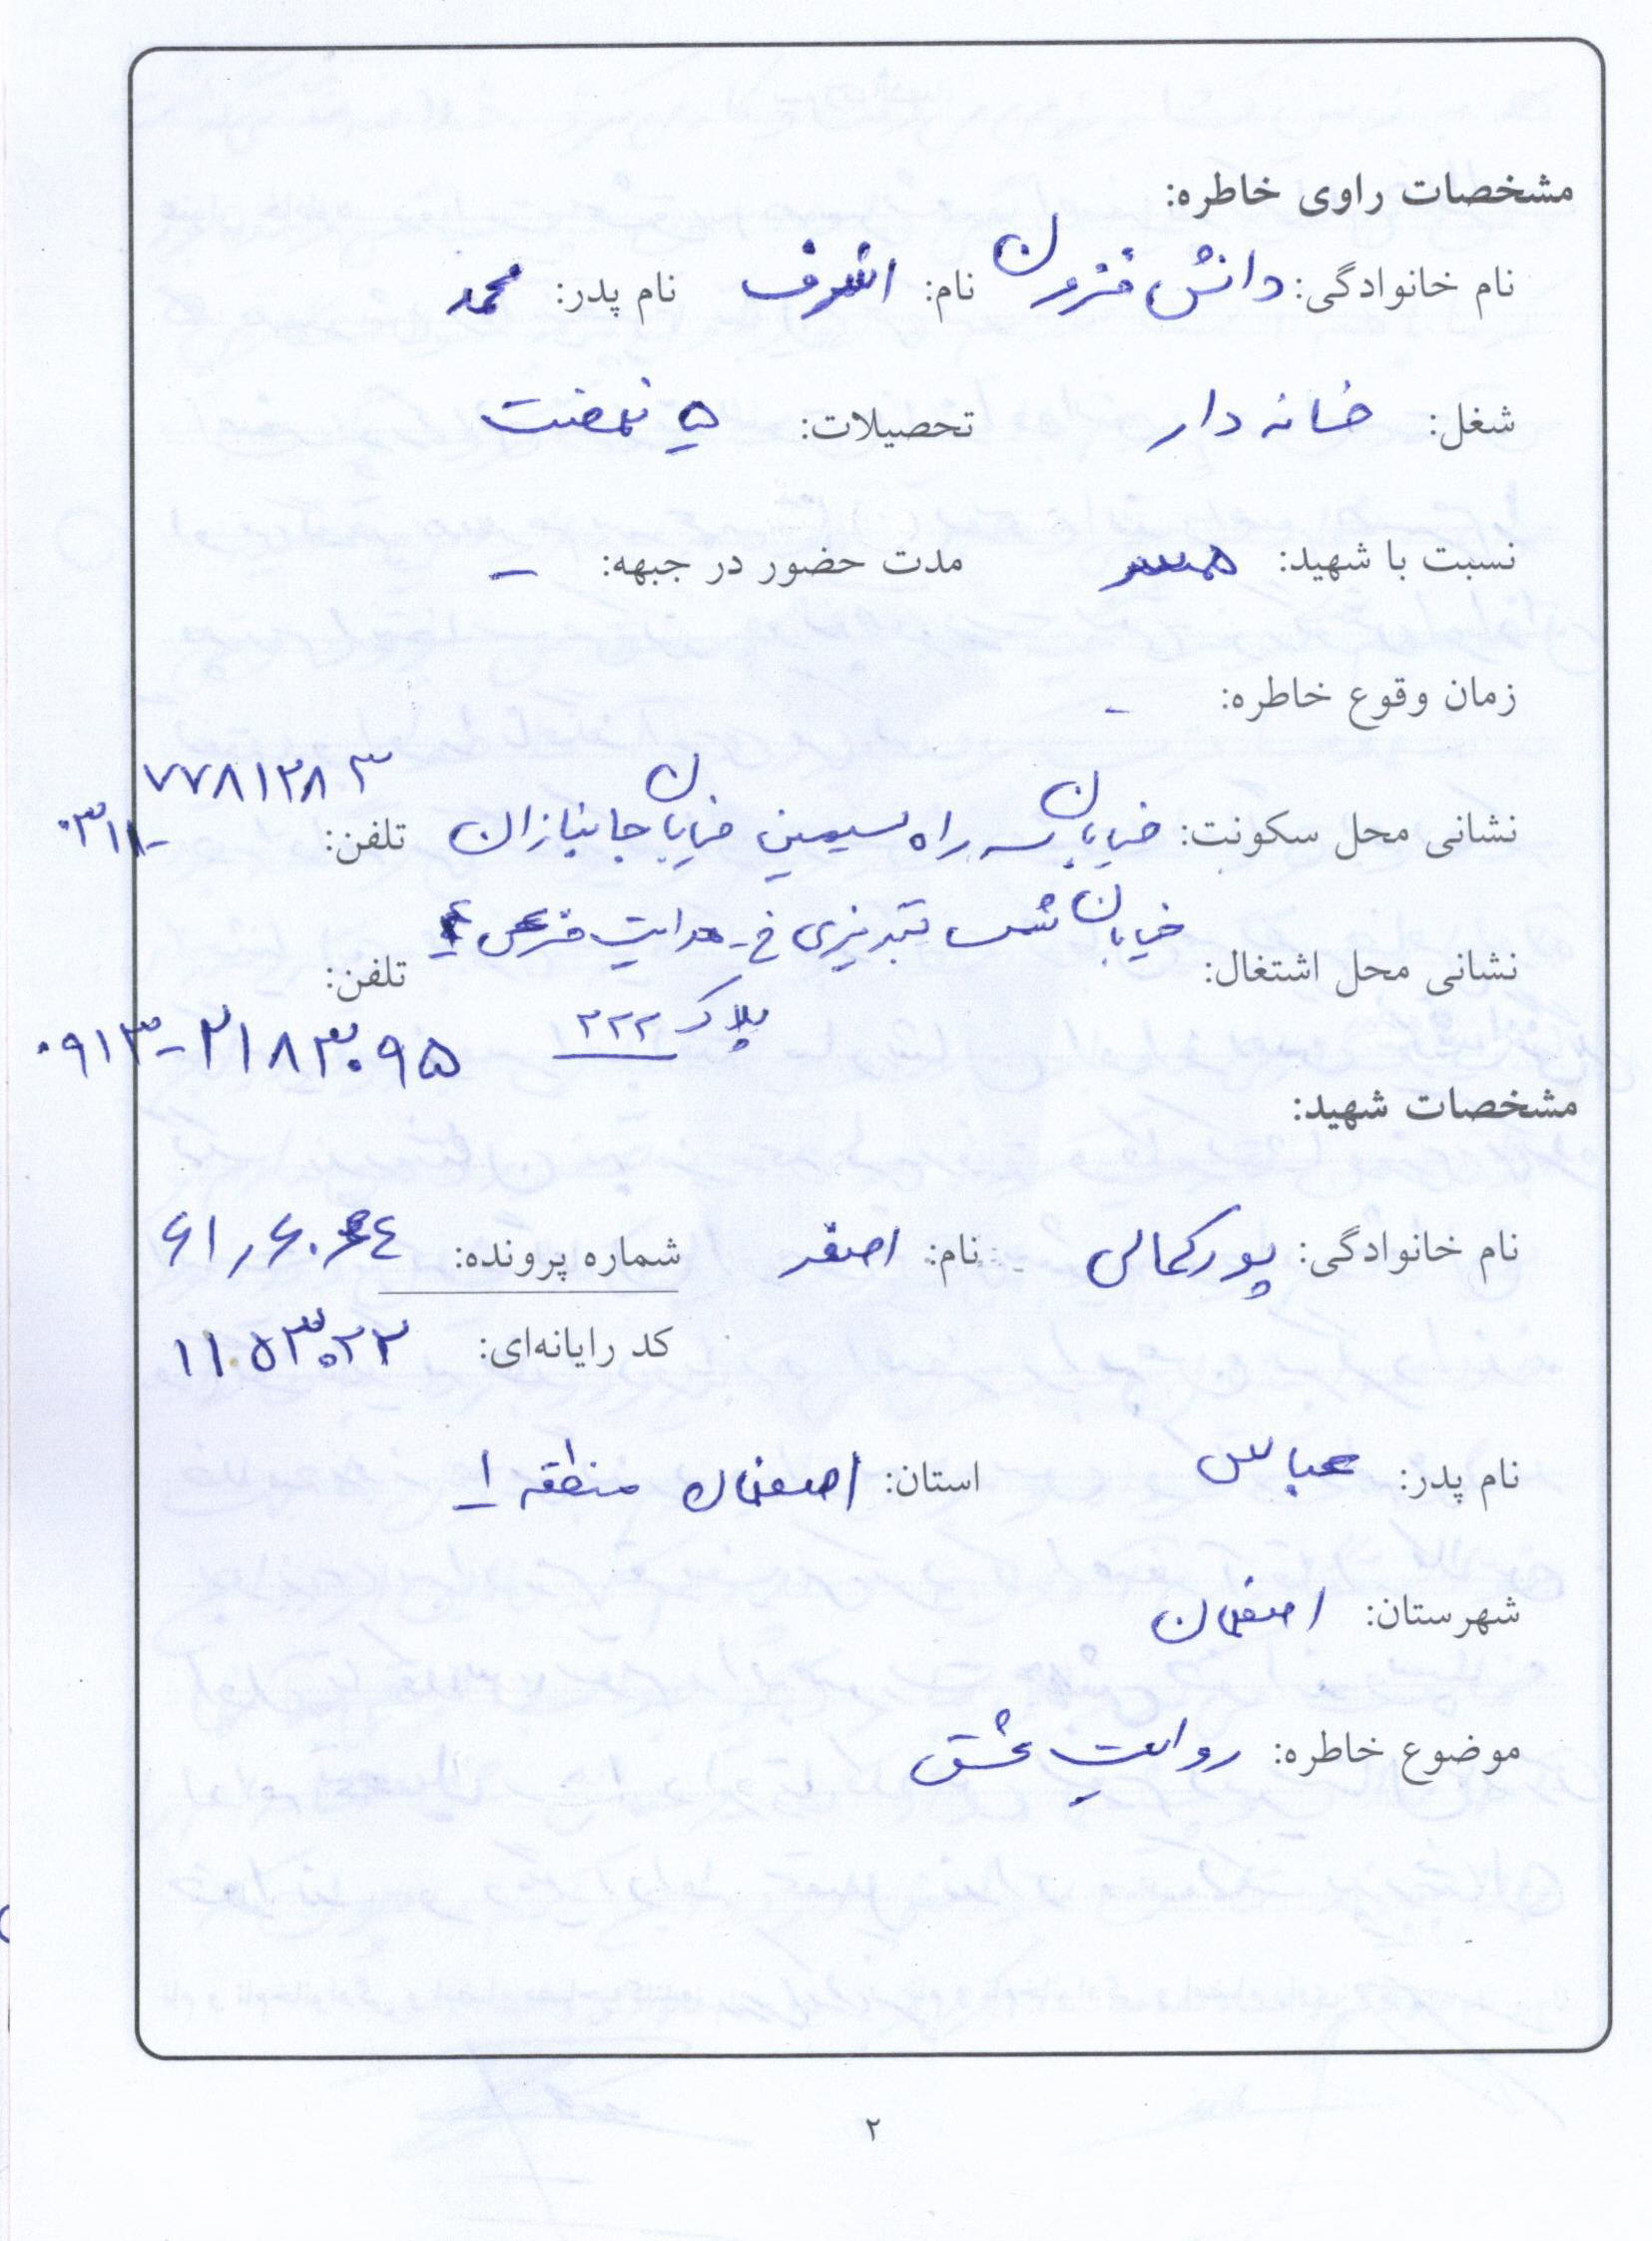 مشخصات راوی خاطره:
نام خانوادگی: دانش فزون نام: اشرف نام پدر: محمد
شغل: خانه دار تحصیلات: ۵ نهضت
نسبت با شهید: همسر مدت حضور در جبهه: –
زمان وقوع خاطره: -
۷۷۸۱۲۸۳
نشانی محل سکونت: خیابان سه راه سیمین خیابان جانبازان تلفن: ۰۳۱۱-
خیابان شمس تبریزی خ- هدایت فرعی ۴
نشانی محل اشتغال: تلفن:
پلاک ۲۲۲ ۰۹۱۳-۲۱۸۳۰۹۵
مشخصات شهید:
نام خانوادگی: پورکمالی نام: اصغر شماره پرونده:
کد رایانه‌ای: ۱۱۵۳۰۲۲
نام پدر: عباس استان: اصفهان منطقه ۱
شهرستان: اصفهان
موضوع خاطره: روایت عشق
۲